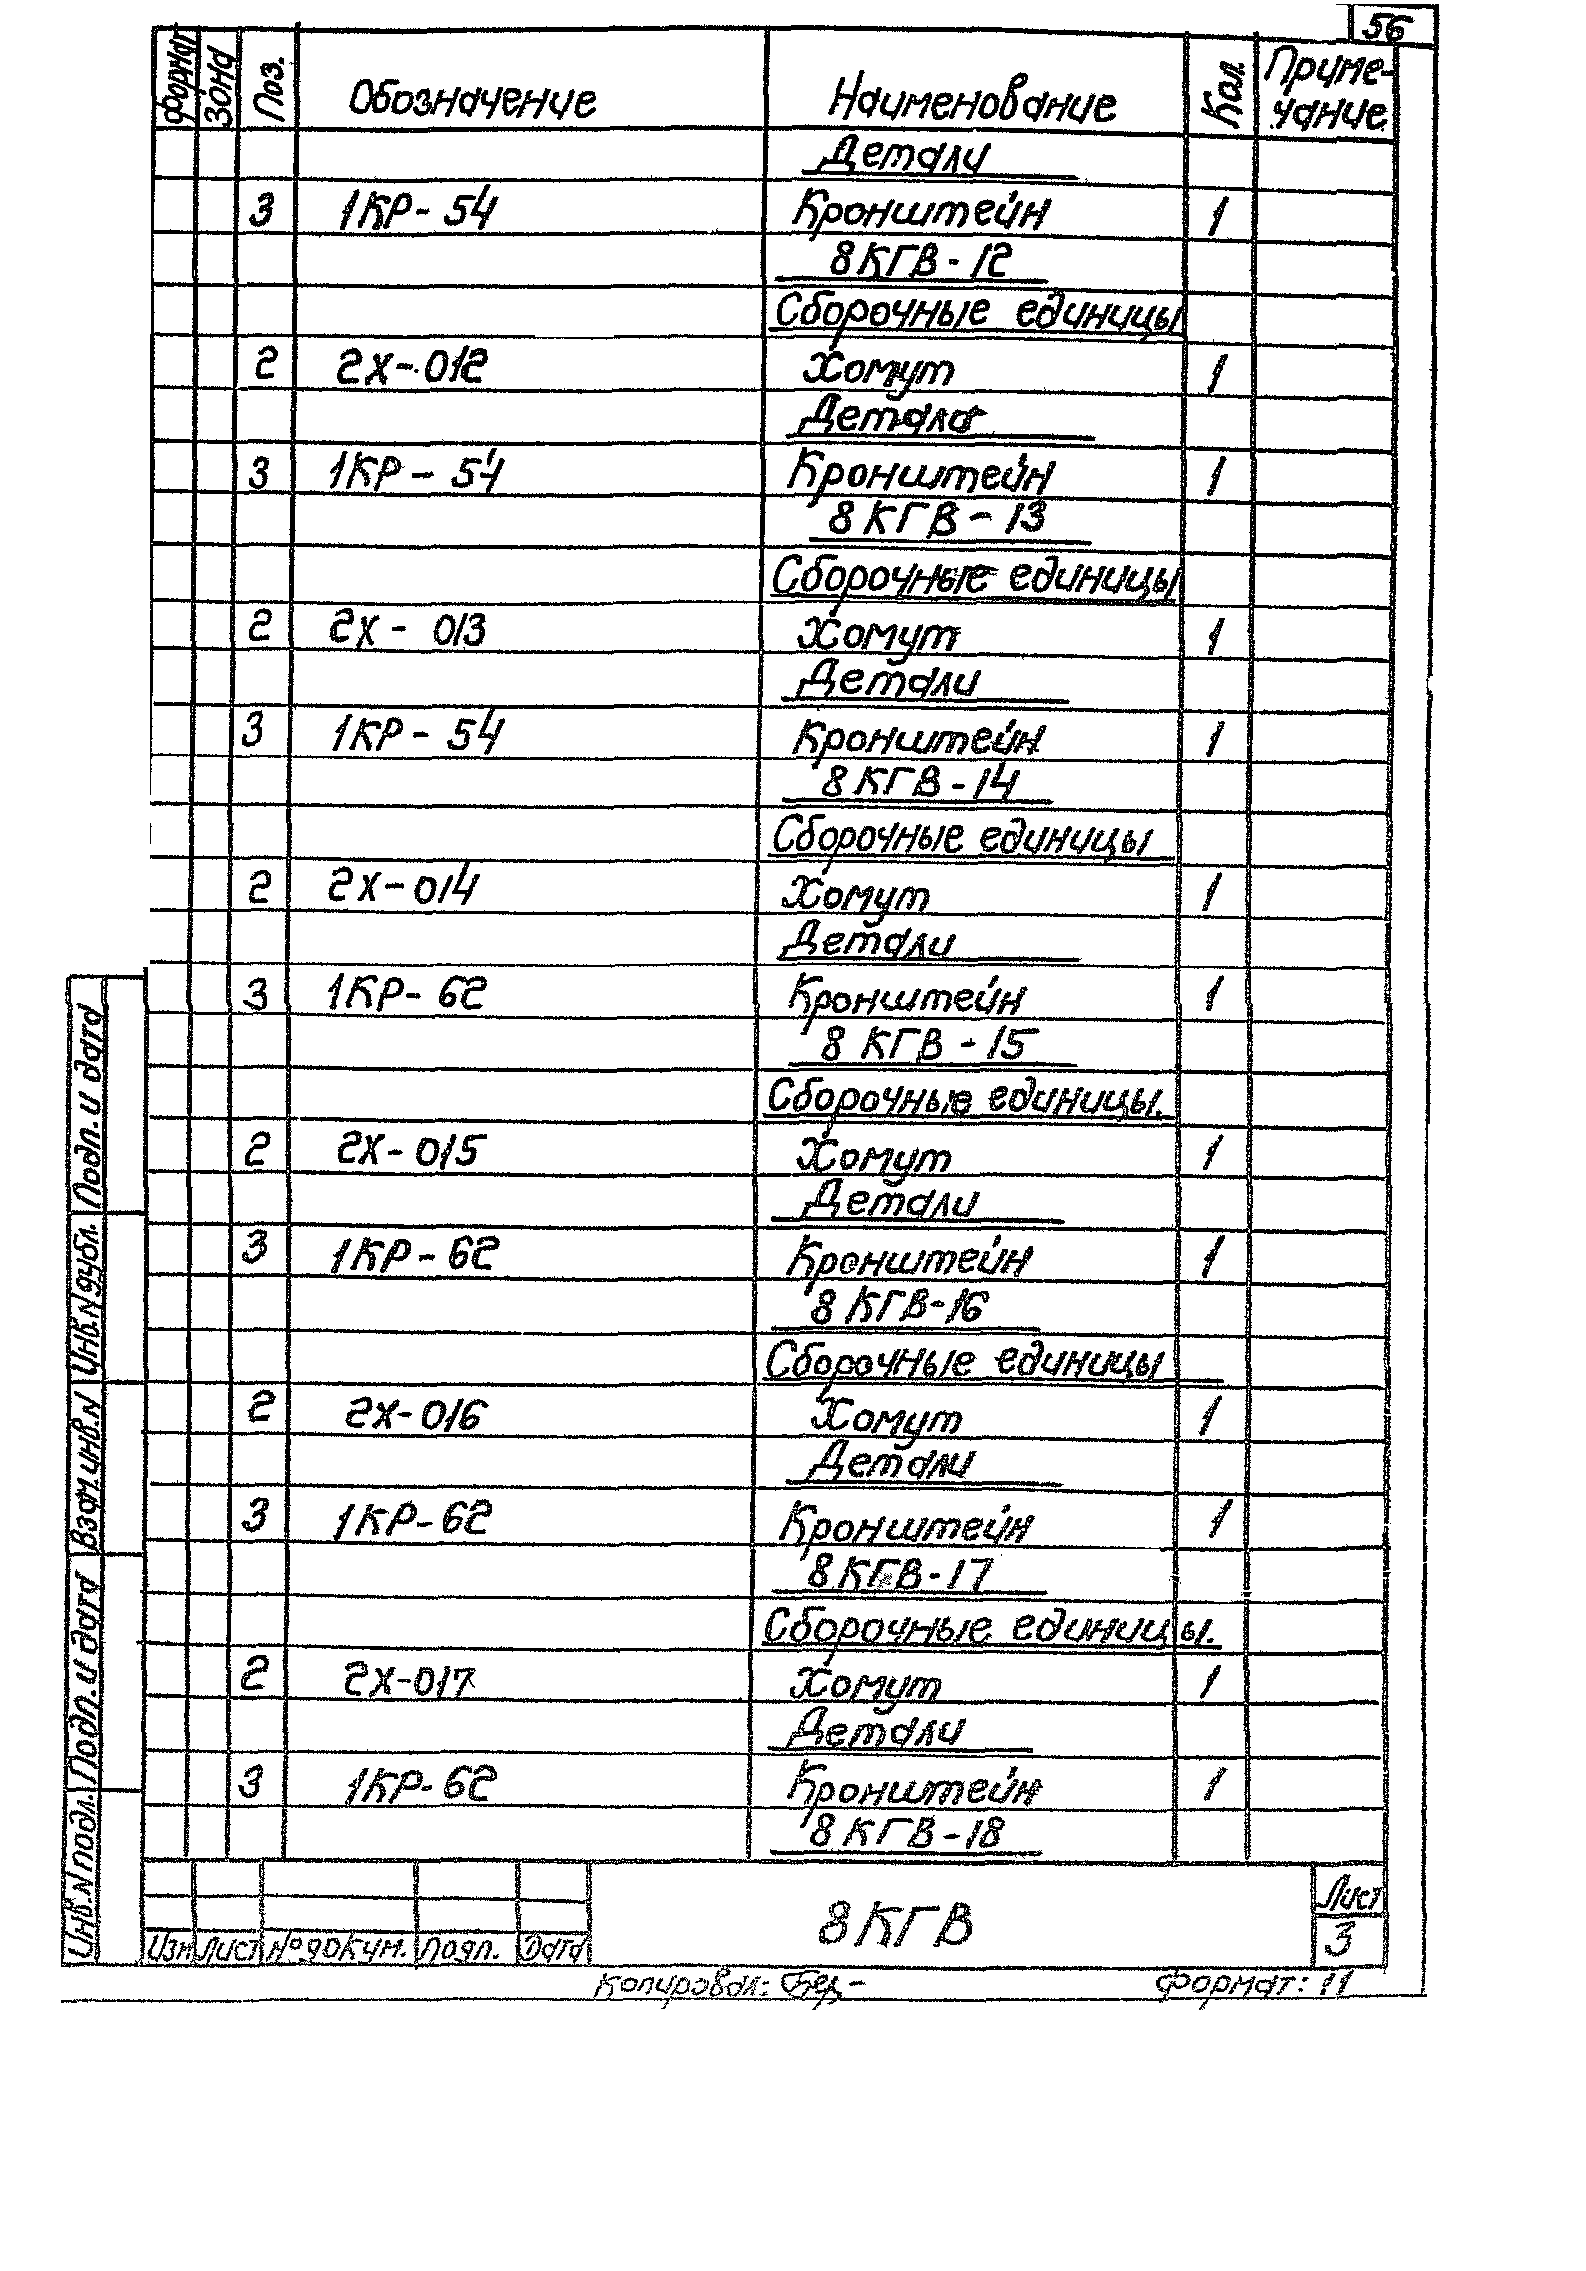 56
Формат Зона Поз. Обозначение Наименование Кол. Приме-
чание
Детали
3 1КР - 54 Кронштейн 1
8КГВ - 12
Сборочные единицы
2 2Х - 012 Хомут 1
Детали
3 1КР - 54 Кронштейн 1
8 КГВ - 13
Сборочные единицы
2 2Х - 013 Хомут 1
Детали
3 1КР - 54 Кронштейн 1
8 КГВ - 14
Сборочные единицы
2 2Х - 014 Хомут 1
Детали
3 1КР - 62 Кронштейн 1
8 КГВ - 15
Сборочные единицы.
2 2Х - 015 Хомут 1
Детали
3 1КР - 62 Кронштейн 1
8 КГВ - 16
Сборочные единицы
2 2Х - 016 Хомут 1
Детали
3 1КР - 62 Кронштейн 1
8 КГВ - 17
Сборочные единицы.
2 2Х - 017 Хомут 1
Детали
3 1КР - 62 Кронштейн 1
8 КГВ - 18
Подп. и дата
Инв. N дубл.
Взам. инв. N
Подп. и дата
Инв. N подл.
8КГВ
Лист
3
Изм Лист № докум. Подп. Дата
Копировал: Формат: 11